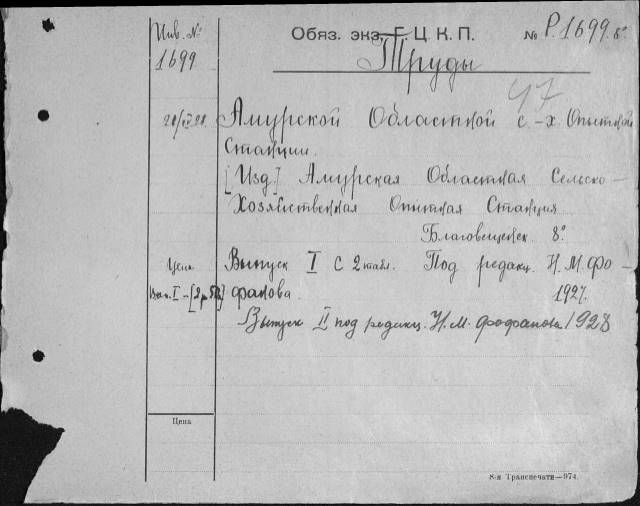 Инв. №
1699
Обяз. экз. Г. Ц. К. П.
№ Р.1699. 8°
Труды
47
Амурской Областной с-х Опытной
Станции.
[Изд.] Амурская Областная Сельско-
Хозяйственная Опытная Станция
Благовещенск 8°
Цена
Выпуск I с 2 табл. Под редакц. Н. М. Фо-
Вып. I - [2 р.
фанова. 1927.
Выпуск II под редакц. Н. М. Фофанова 1928
Цена
8-я Транспечати—974.